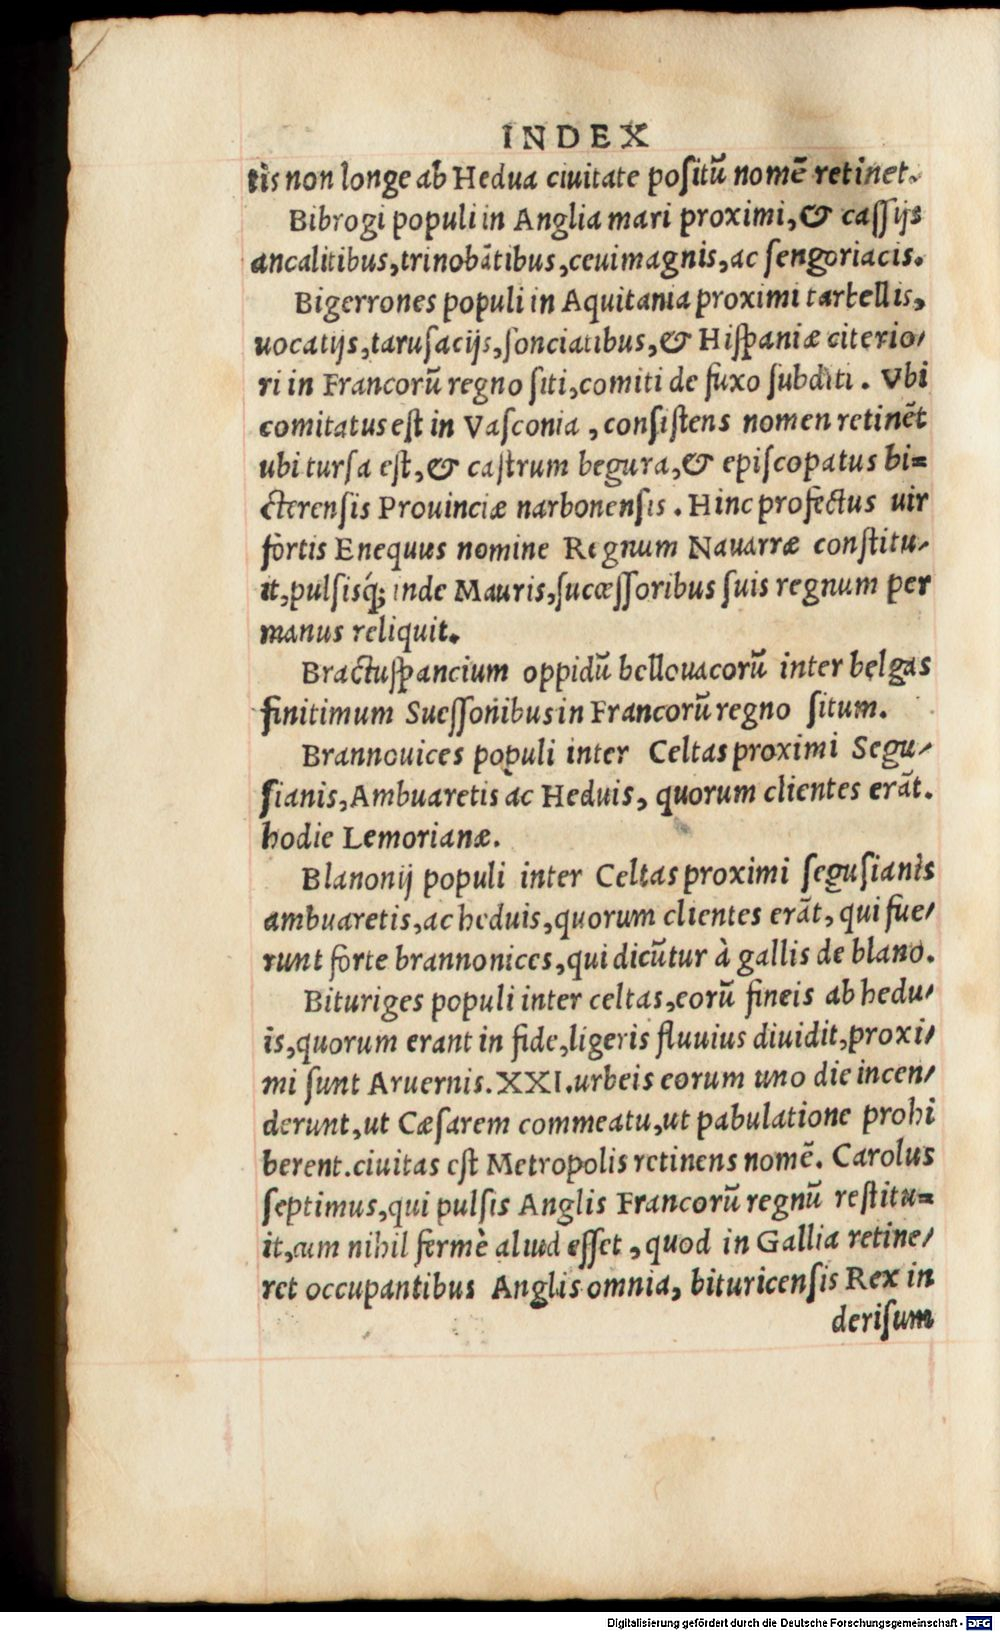 INDEX
tis non longe ab Hedua ciuitate positū nomē retinet.
Bibrogi populi in Anglia mari proximi, & cassijs
ancalitibus, trinobātibus, ceuimagnis, ac sengoriacis.
Bigerrones populi in Aquitania proximi tarbellis,
uocatijs, tarusacijs, sonciatibus, & Hispaniæ citerio/
ri in Francorū regno siti, comiti de fuxo subditi. Vbi
comitatus est in Vasconia, consistens nomen retinēt
ubi tursa est, & castrum begura, & episcopatus bi=
cterensis Prouinciæ narbonensis. Hinc profectus uir
fortis Enequus nomine Regnum Nauarræ constitu/
it, pulsisq́; inde Mauris, sucæssoribus suis regnum per
manus reliquit.
Bractuspancium oppidū bellouacorū inter belgas
finitimum Suessonibus in Francorū regno situm.
Brannouices populi inter Celtas proximi Segu/
sianis, Ambuaretis ac Heduis, quorum clientes erāt.
hodie Lemorianæ.
Blanonij populi inter Celtas proximi segusianis
ambuaretis, ac heduis, quorum clientes erāt, qui fue/
runt forte brannonices, qui dicūtur à gallis de blano.
Bituriges populi inter celtas, eorū fineis ab hedu/
is, quorum erant in fide, ligeris fluuius diuidit, proxi/
mi sunt Aruernis. XXI. urbeis eorum uno die incen/
derunt, ut Cæsarem commeatu, ut pabulatione prohi
berent. ciuitas est Metropolis retinens nomē. Carolus
septimus, qui pulsis Anglis Francorū regnū restitu=
it, cum nihil fermè aliud esset, quod in Gallia retine/
ret occupantibus Anglis omnia, bituricensis Rex in
derisum
Digitalisierung gefördert durch die Deutsche Forschungsgemeinschaft - DFG